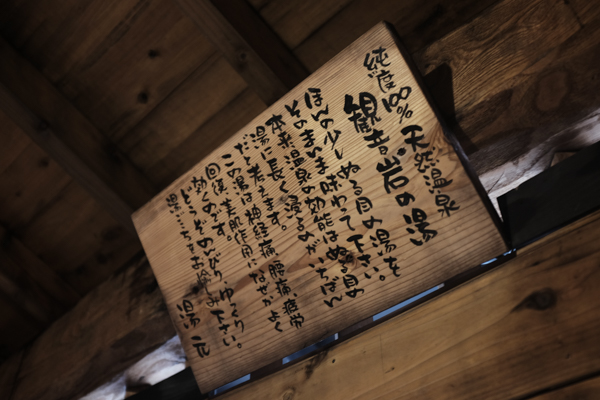 純度100% 天然温泉
観音岩の湯
ほんの少しぬる目の湯を
そのまま味わって下さい。
本来温泉の効能はぬる目の
湯に長く浸るのがいちばん
だと考えます。
この湯は神経痛、腰痛、疲労
回復、美肌作用になかなかよく
効くのです。
どうぞのんびりゆっくり
お下さい。
湯元